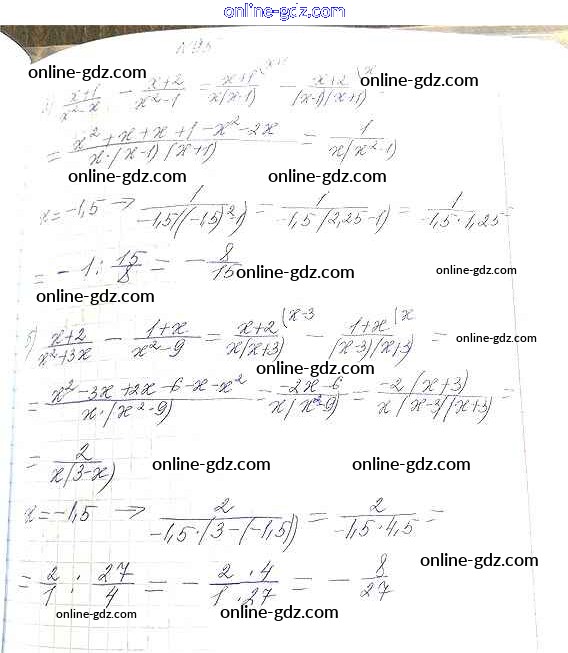 online-gdz.com
№95
online-gdz.com online-gdz.com
а) (x+1)/(x²-x) - (x+2)/(x²-1) = (x+1)/(x(x-1)) (x+1 - (x+2)/((x-1)(x+1)) (x =
= (x²+x+x+1-x²-2x)/(x·(x-1)(x+1)) = 1/(x(x²-1))
online-gdz.com online-gdz.com
x=-1,5 → 1/(-1,5((-1,5)²-1)) = 1/(-1,5(2,25-1)) = 1/(-1,5·1,25) =
= -1 : 15/8 = -8/15 online-gdz.com online-gdz.com
online-gdz.com
б) (x+2)/(x²+3x) - (1+x)/(x²-9) = (x+2)/(x(x+3)) (x-3 - (1+x)/((x-3)(x+3)) (x =
online-gdz.com online-gdz.com
= (x²-3x+2x-6-x-x²)/(x·(x²-9)) = (-2x-6)/(x(x²-9)) = (-2(x+3))/(x(x-3)(x+3)) =
= 2/(x(3-x)) online-gdz.com online-gdz.com
x=-1,5 → 2/(-1,5·(3-(-1,5))) = 2/(-1,5·4,5) =
online-gdz.com
= 2/1 : 27/4 = - (2·4)/(1·27) = - 8/27
online-gdz.com online-gdz.com